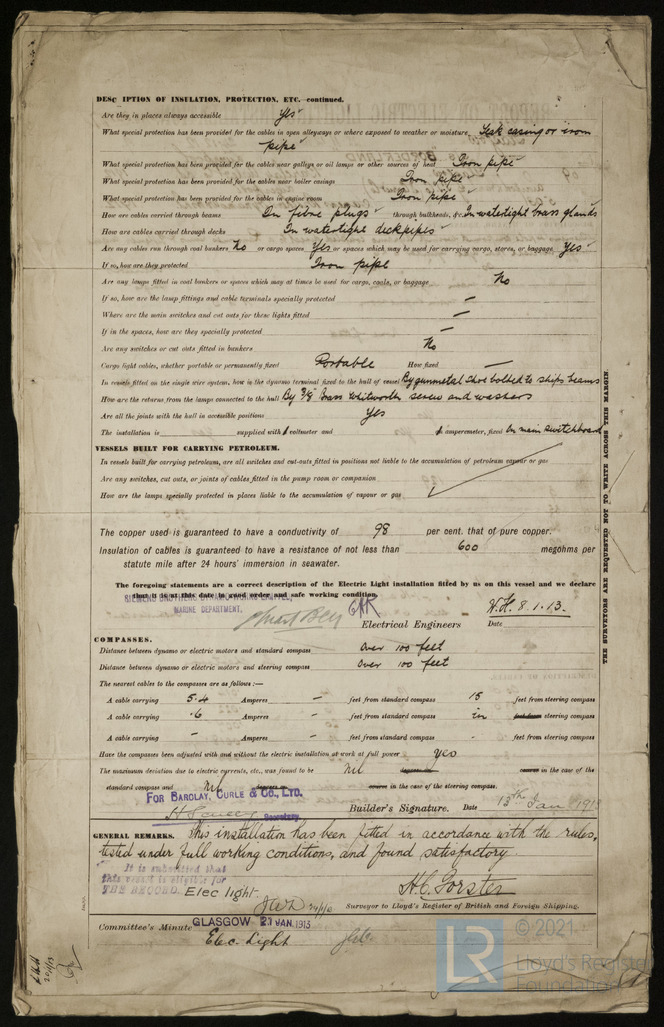 DESC IPTION OF INSULATION, PROTECTION, ETC. continued.
Are they in places always accessible yes
What special protection has been provided for the cables in open alleyways or where exposed to weather or moisture, Teak casing or iron
pipe
What special protection has been provided for the cables near galleys or oil lamps or other sources of heat Iron pipe
What special protection has been provided for the cables near boiler casings Iron pipe
What special protection has been provided for the cables in engine room Iron pipe
How are cables carried through beams In fibre plugs through bulkheads, &c. In watertight brass glands
How are cables carried through decks In watertight deckpipes
Are any cables run through coal bunkers No or cargo spaces Yes or spaces which may be used for carrying cargo, stores, or baggage Yes
If so, how are they protected Iron pipe
Are any lamps fitted in coal bunkers or spaces which may at times be used for cargo, coals, or baggage No
If so, how are the lamp fittings and cable terminals specially protected —
Where are the main switches and cut outs for these lights fitted —
If in the spaces, how are they specially protected —
Are any switches or cut outs fitted in bunkers No
Cargo light cables, whether portable or permanently fixed Portable How fixed —
In vessels fitted on the single wire system, how is the dynamo terminal fixed to the hull of vessel By gunmetal shoe bolted to ships beams
How are the returns from the lamps connected to the hull By 3/8 brass whitworth screw and washers
Are all the joints with the hull in accessible positions Yes
The installation is supplied with 1 voltmeter and 1 amperemeter, fixed On main switchboard
VESSELS BUILT FOR CARRYING PETROLEUM.
In vessels built for carrying petroleum, are all switches and cut-outs fitted in positions not liable to the accumulation of petroleum vapour or gas
Are any switches, cut outs, or joints of cables fitted in the pump room or companion
How are the lamps specially protected in places liable to the accumulation of vapour or gas
The copper used is guaranteed to have a conductivity of 98 per cent. that of pure copper.
Insulation of cables is guaranteed to have a resistance of not less than 600 megohms per
statute mile after 24 hours' immersion in seawater.
The foregoing statements are a correct description of the Electric Light installation fitted by us on this vessel and we declare
that it is at this date in good order and safe working condition.
MARINE DEPARTMENT.
Electrical Engineers Date 8.1.13.
COMPASSES.
Distance between dynamo or electric motors and standard compass Over 100 feet
Distance between dynamo or electric motors and steering compass Over 100 feet
The nearest cables to the compasses are as follows :—
A cable carrying 5.4 Amperes – feet from standard compass 15 feet from steering compass
A cable carrying .6 Amperes – feet from standard compass in feet from steering compass
A cable carrying – Amperes – feet from standard compass - feet from steering compass
Have the compasses been adjusted with and without the electric installation at work at full power yes
The maximum deviation due to electric currents, etc., was found to be Nil degrees on course in the case of the
standard compass and Nil degrees on course in the case of the steering compass.
FOR BARCLAY, CURLE & CO., LTD.
Secretary. Builder's Signature. Date 13th Jan 1913
GENERAL REMARKS. This installation has been fitted in accordance with the rules,
tested under full working conditions, and found satisfactory.
It is submitted that
this vessel is eligible for
THE RECORD. Elec light.
H.C. Forster
Surveyor to Lloyd's Register of British and Foreign Shipping.
Committee's Minute GLASGOW 21 JAN. 1913
Elec. Light
THE SURVEYORS ARE REQUESTED NOT TO WRITE ACROSS THIS MARGIN.
LR
© 2021
Lloyd's Register
Foundation